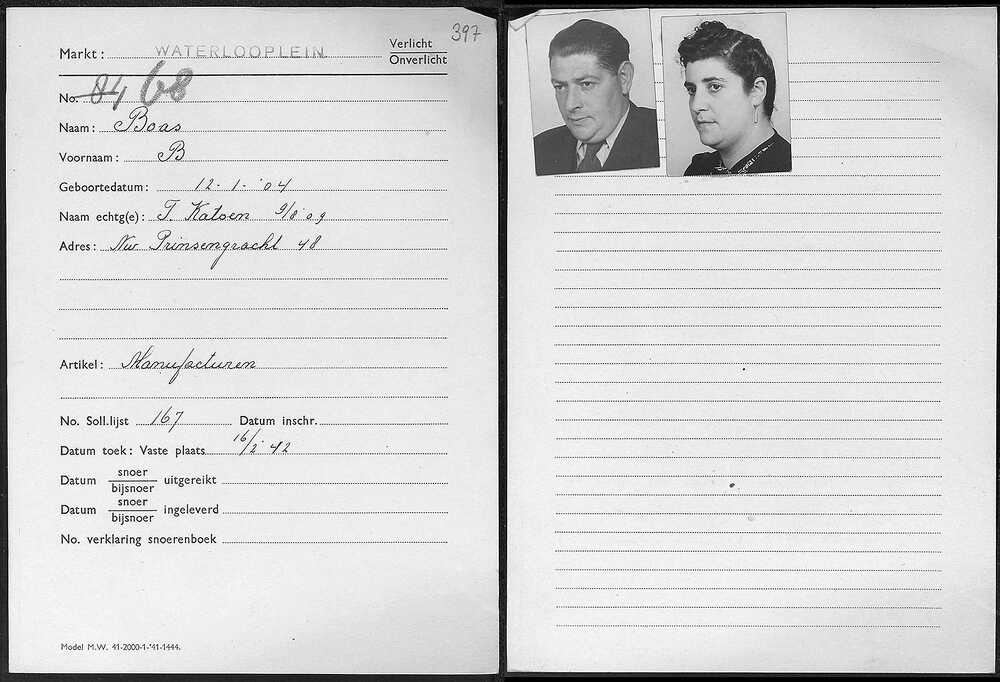 397
Markt: WATERLOOPLEIN Verlicht
Onverlicht
No. 84 68
Naam: Boas
Voornaam: B
Geboortedatum: 12-1-'04
Naam echtg(e): T. Katoen 9/8'09
Adres: Nw Prinsengracht 48
Artikel: Manufacturen
No. Soll.lijst 167 Datum inschr.
Datum toek: Vaste plaats 16/2'42
Datum snoer uitgereikt
bijsnoer
Datum snoer ingeleverd
bijsnoer
No. verklaring snoerenboek
Model M.W. 41-2000-1-'41-1444.